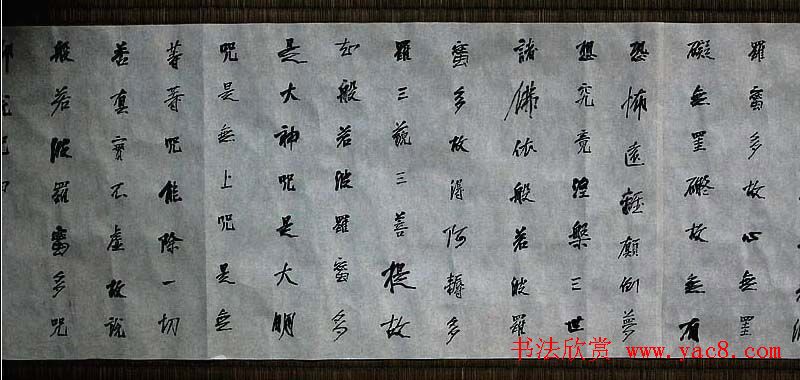 羅蜜多故心無罣
礙無罣礙故無有
恐怖遠離顛倒夢
想究竟涅槃三世
諸佛依般若波羅
蜜多故得阿耨多
羅三藐三菩提故
知般若波羅蜜多
是大神咒是大明
咒是無上咒是無
等等咒能除一切
苦真實不虛故說
般若波羅蜜多咒
即說咒曰
书法欣赏 www.yac8.com